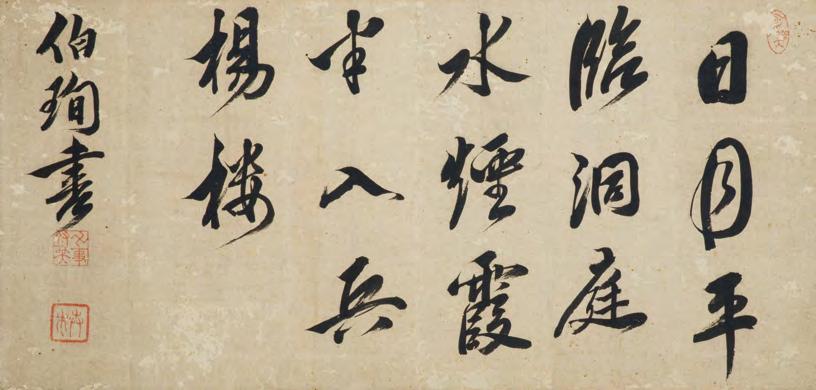 日月平
臨洞庭
水煙霞
半入兵
楊樓
伯珣書